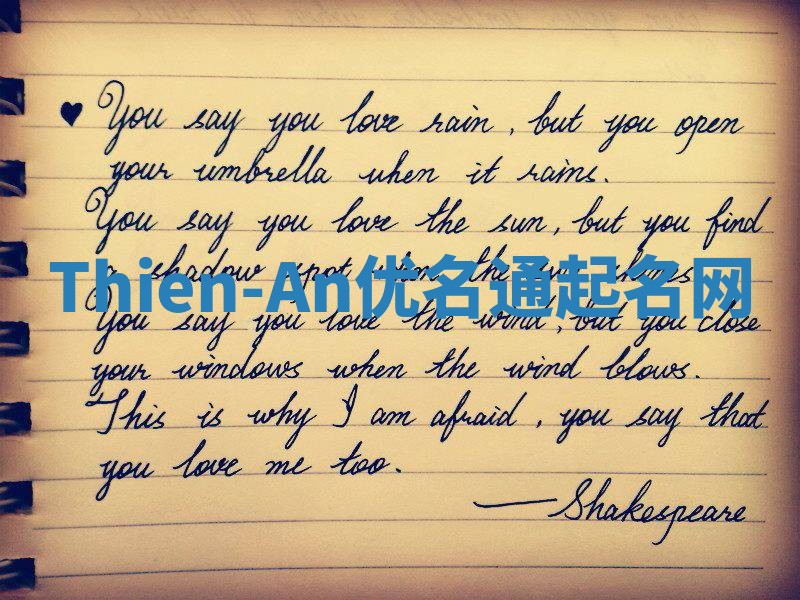 ♥ You say you love rain, but you open
your umbrella when it rains.
You say you love the sun, but you find
a shadow spot when the sun shines
Thien-An优名通起名网
You say you love the wind, but you close
your windows when the wind blows.
This is why I am afraid, you say that
you love me too.
—Shakespeare